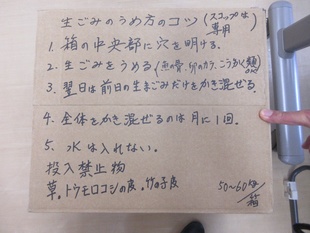 生ごみのうめ方のコツ (スコップは専用
1. 箱の中央部に穴を明ける。
2. 生ごみをうめる (魚の骨、卵のカラ、こうかく類OK)
3. 翌日は前日の生ごみだけをかき混ぜる。
4. 全体をかき混ぜるのは月に1回。
5. 水は入れない。
投入禁止物
草、トウモロコシの皮、竹の子皮
50〜60㎏/箱